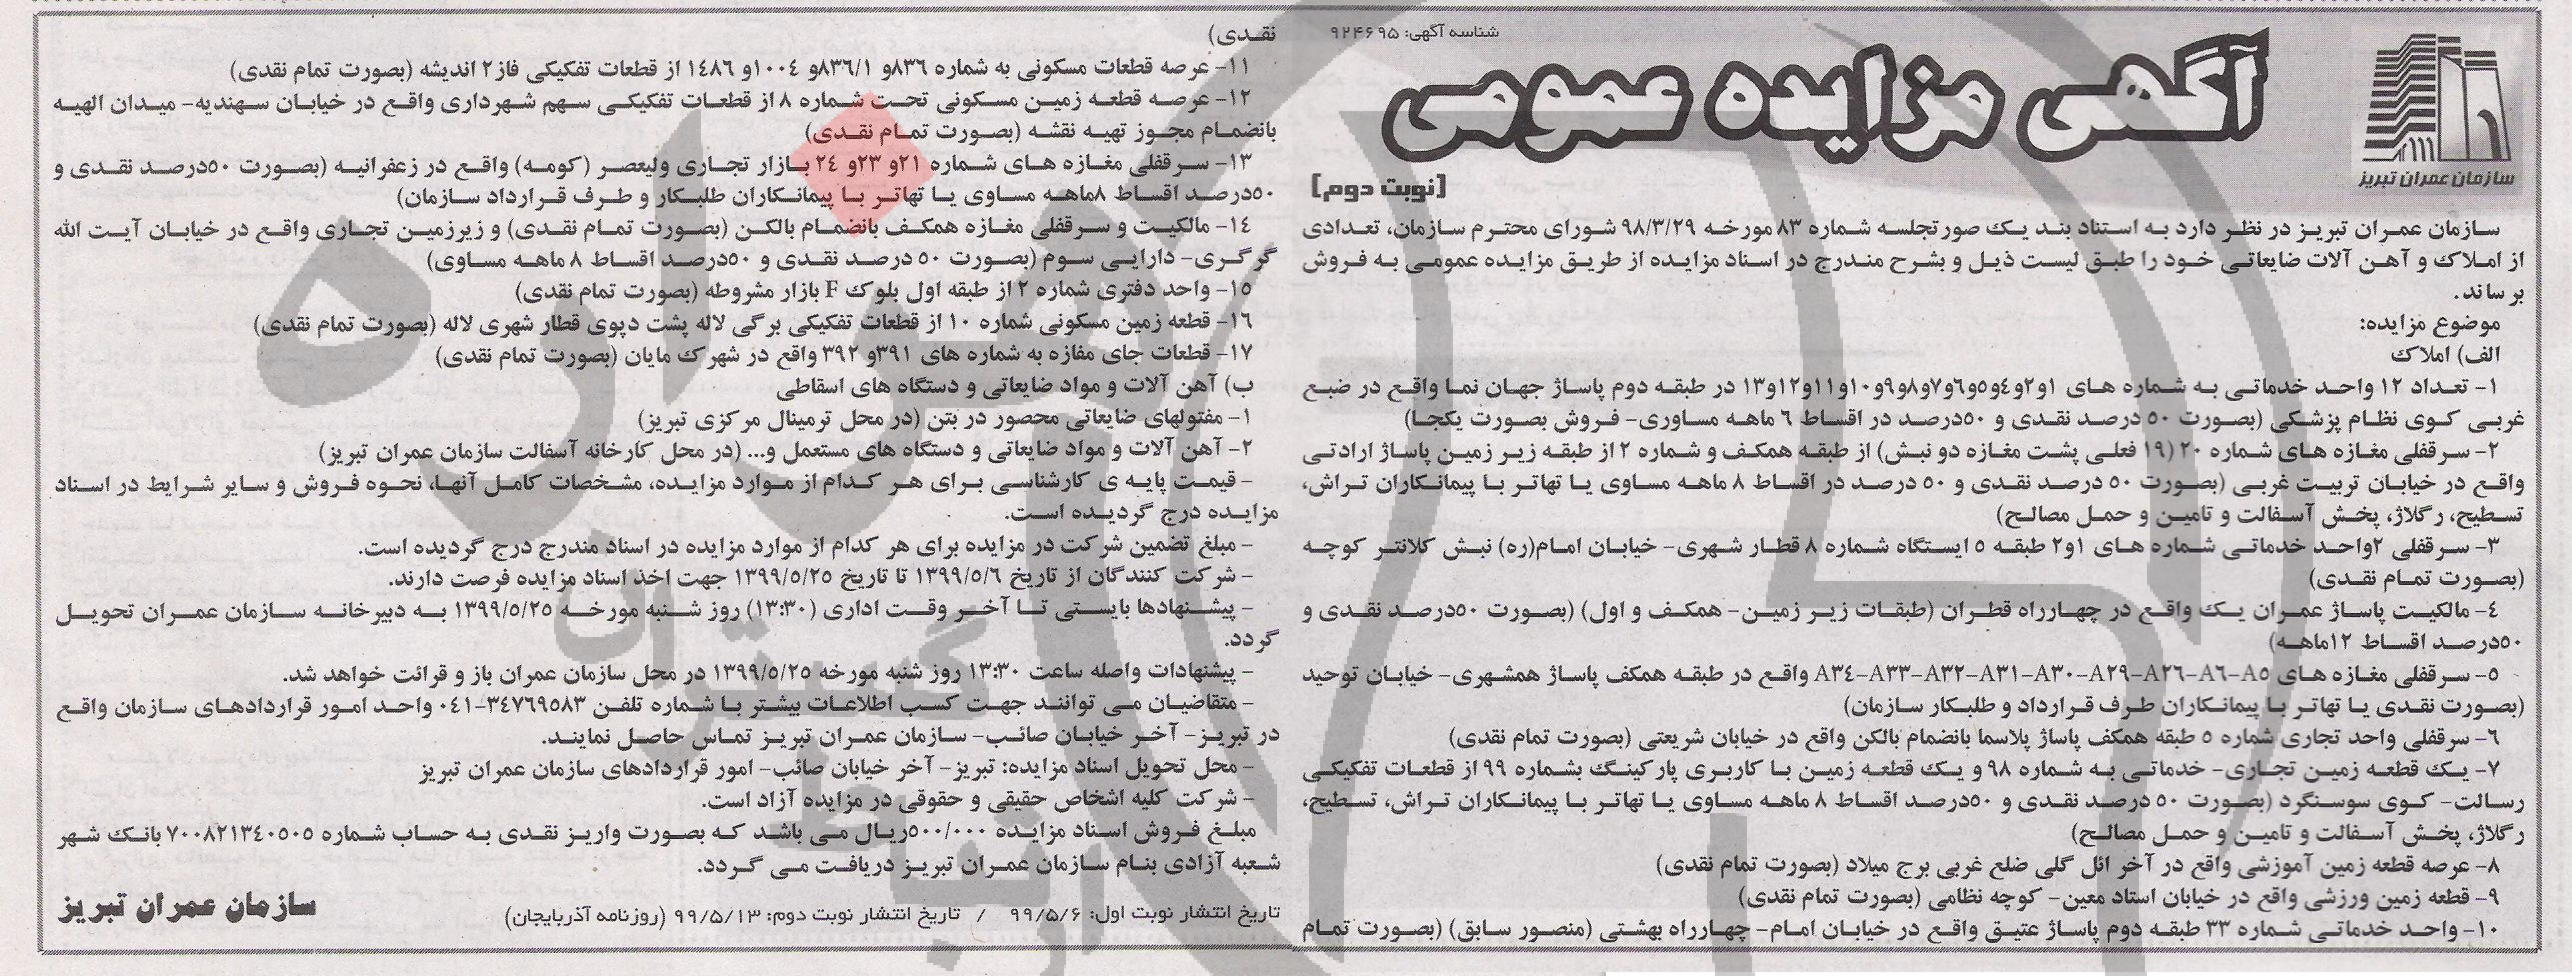 شناسه آگهی: ۹۲۴۶۹۵
آگهی مزایده عمومی
سازمان عمران تبریز
[نوبت دوم]
سازمان عمران تبریز در نظر دارد به استناد بند یک صورتجلسه شماره ۸۳ مورخه ۹۸/۳/۲۹ شورای محترم سازمان، تعدادی
از املاک و آهن آلات ضایعاتی خود را طبق لیست ذیل و بشرح مندرج در اسناد مزایده از طریق مزایده عمومی به فروش
برساند.
موضوع مزایده:
الف) املاک
۱- تعداد ۱۲ واحد خدماتی به شماره های ۱و۲و۴و۵و۶و۷و۸و۹و۱۰و۱۱و۱۲و۱۳ در طبقه دوم پاساژ جهان نما واقع در ضبع
غربی کوی نظام پزشکی (بصورت ۵۰ درصد نقدی و ۵۰درصد در اقساط ۶ ماهه مساوری- فروش بصورت یکجا)
۲- سرقفلی مغازه های شماره ۲۰ (۱۹ فعلی پشت مغازه دو نبش) از طبقه همکف و شماره ۲ از طبقه زیر زمین پاساژ ارادتی
واقع در خیابان تربیت غربی (بصورت ۵۰ درصد نقدی و ۵۰ درصد در اقساط ۸ ماهه مساوی یا تهاتر با پیمانکاران تراش،
تسطیح، رگلاژ، پخش آسفالت و تامین و حمل مصالح)
۳- سرقفلی ۲واحد خدماتی شماره های ۱و۲ طبقه ۵ ایستگاه شماره ۸ قطار شهری- خیابان امام(ره) نبش کلانتر کوچه
(بصورت تمام نقدی)
۴- مالکیت پاساژ عمران یک واقع در چهارراه قطران (طبقات زیر زمین- همکف و اول) (بصورت ۵۰درصد نقدی و
۵۰درصد اقساط ۱۲ماهه)
۵- سرقفلی مغازه های A۵-A۶-A۲۶-A۲۹-A۳۰-A۳۱-A۳۲-A۳۳-A۳۴ واقع در طبقه همکف پاساژ همشهری- خیابان توحید
(بصورت نقدی یا تهاتر با پیمانکاران طرف قرارداد و طلبکار سازمان)
۶- سرقفلی واحد تجاری شماره ۵ طبقه همکف پاساژ پلاسما بانضمام بالکن واقع در خیابان شریعتی (بصورت تمام نقدی)
۷- یک قطعه زمین تجاری- خدماتی به شماره ۹۸ و یک قطعه زمین با کاربری پارکینگ بشماره ۹۹ از قطعات تفکیکی
رسالت- کوی سوسنگرد (بصورت ۵۰ درصد نقدی و ۵۰درصد اقساط ۸ ماهه مساوی یا تهاتر با پیمانکاران تراش، تسطیح،
رگلاژ، پخش آسفالت و تامین و حمل مصالح)
۸- عرصه قطعه زمین آموزشی واقع در آخر ائل گلی ضلع غربی برج میلاد (بصورت تمام نقدی)
۹- قطعه زمین ورزشی واقع در خیابان استاد معین- کوچه نظامی (بصورت تمام نقدی)
۱۰- واحد خدماتی شماره ۳۳ طبقه دوم پاساژ عتیق واقع در خیابان امام- چهارراه بهشتی (منصور سابق) (بصورت تمام
نقدی)
۱۱- عرصه قطعات مسکونی به شماره ۸۳۶و ۸۳۶/۱و ۱۰۰۴و ۱۴۸۶ از قطعات تفکیکی فاز۲ اندیشه (بصورت تمام نقدی)
۱۲- عرصه قطعه زمین مسکونی تحت شماره ۸ از قطعات تفکیکی سهم شهرداری واقع در خیابان سهندیه- میدان الهیه
بانضمام مجوز تهیه نقشه (بصورت تمام نقدی)
۱۳- سرقفلی مغازه های شماره ۲۱و ۲۳و ۲۴ بازار تجاری ولیعصر (کومه) واقع در زعفرانیه (بصورت ۵۰درصد نقدی و
۵۰درصد اقساط ۸ماهه مساوی یا تهاتر با پیمانکاران طلبکار و طرف قرارداد سازمان)
۱۴- مالکیت و سرقفلی مغازه همکف بانضمام بالکن (بصورت تمام نقدی) و زیرزمین تجاری واقع در خیابان آیت الله
گرگری- دارایی سوم (بصورت ۵۰ درصد نقدی و ۵۰درصد اقساط ۸ ماهه مساوی)
۱۵- واحد دفتری شماره ۲ از طبقه اول بلوک F بازار مشروطه (بصورت تمام نقدی)
۱۶- قطعه زمین مسکونی شماره ۱۰ از قطعات تفکیکی برگی لاله پشت دپوی قطار شهری لاله (بصورت تمام نقدی)
۱۷- قطعات جای مغازه به شماره های ۳۹۱و ۳۹۲ واقع در شهرک مایان (بصورت تمام نقدی)
ب) آهن آلات و مواد ضایعاتی و دستگاه های اسقاطی
۱- مفتولهای ضایعاتی محصور در بتن (در محل ترمینال مرکزی تبریز)
۲- آهن آلات و مواد ضایعاتی و دستگاه های مستعمل و... (در محل کارخانه آسفالت سازمان عمران تبریز)
- قیمت پایه ی کارشناسی برای هر کدام از موارد مزایده، مشخصات کامل آنها، نحوه فروش و سایر شرایط در اسناد
مزایده درج گردیده است.
- مبلغ تضمین شرکت در مزایده برای هر کدام از موارد مزایده در اسناد مندرج درج گردیده است.
- شرکت کنندگان از تاریخ ۱۳۹۹/۵/۶ تا تاریخ ۱۳۹۹/۵/۲۵ جهت اخذ اسناد مزایده فرصت دارند.
- پیشنهادها بایستی تا آخر وقت اداری (۱۳:۳۰) روز شنبه مورخه ۱۳۹۹/۵/۲۵ به دبیرخانه سازمان عمران تحویل
گردد.
- پیشنهادات واصله ساعت ۱۳:۳۰ روز شنبه مورخه ۱۳۹۹/۵/۲۵ در محل سازمان عمران باز و قرائت خواهد شد.
- متقاضیان می توانند جهت کسب اطلاعات بیشتر با شماره تلفن ۳۴۷۶۹۵۸۳-۰۴۱ واحد امور قراردادهای سازمان واقع
در تبریز- آخر خیابان صائب- سازمان عمران تبریز تماس حاصل نمایند.
- محل تحویل اسناد مزایده: تبریز- آخر خیابان صائب- امور قراردادهای سازمان عمران تبریز
- شرکت کلیه اشخاص حقیقی و حقوقی در مزایده آزاد است.
مبلغ فروش اسناد مزایده ۵۰۰/۰۰۰ریال می باشد که بصورت واریز نقدی به حساب شماره ۷۰۰۸۲۱۳۴۰۵۰۵ بانک شهر
شعبه آزادی بنام سازمان عمران تبریز دریافت می گردد.
تاریخ انتشار نوبت اول: ۹۹/۵/۶ / تاریخ انتشار نوبت دوم: ۹۹/۵/۱۳ (روزنامه آذربایجان)
سازمان عمران تبریز